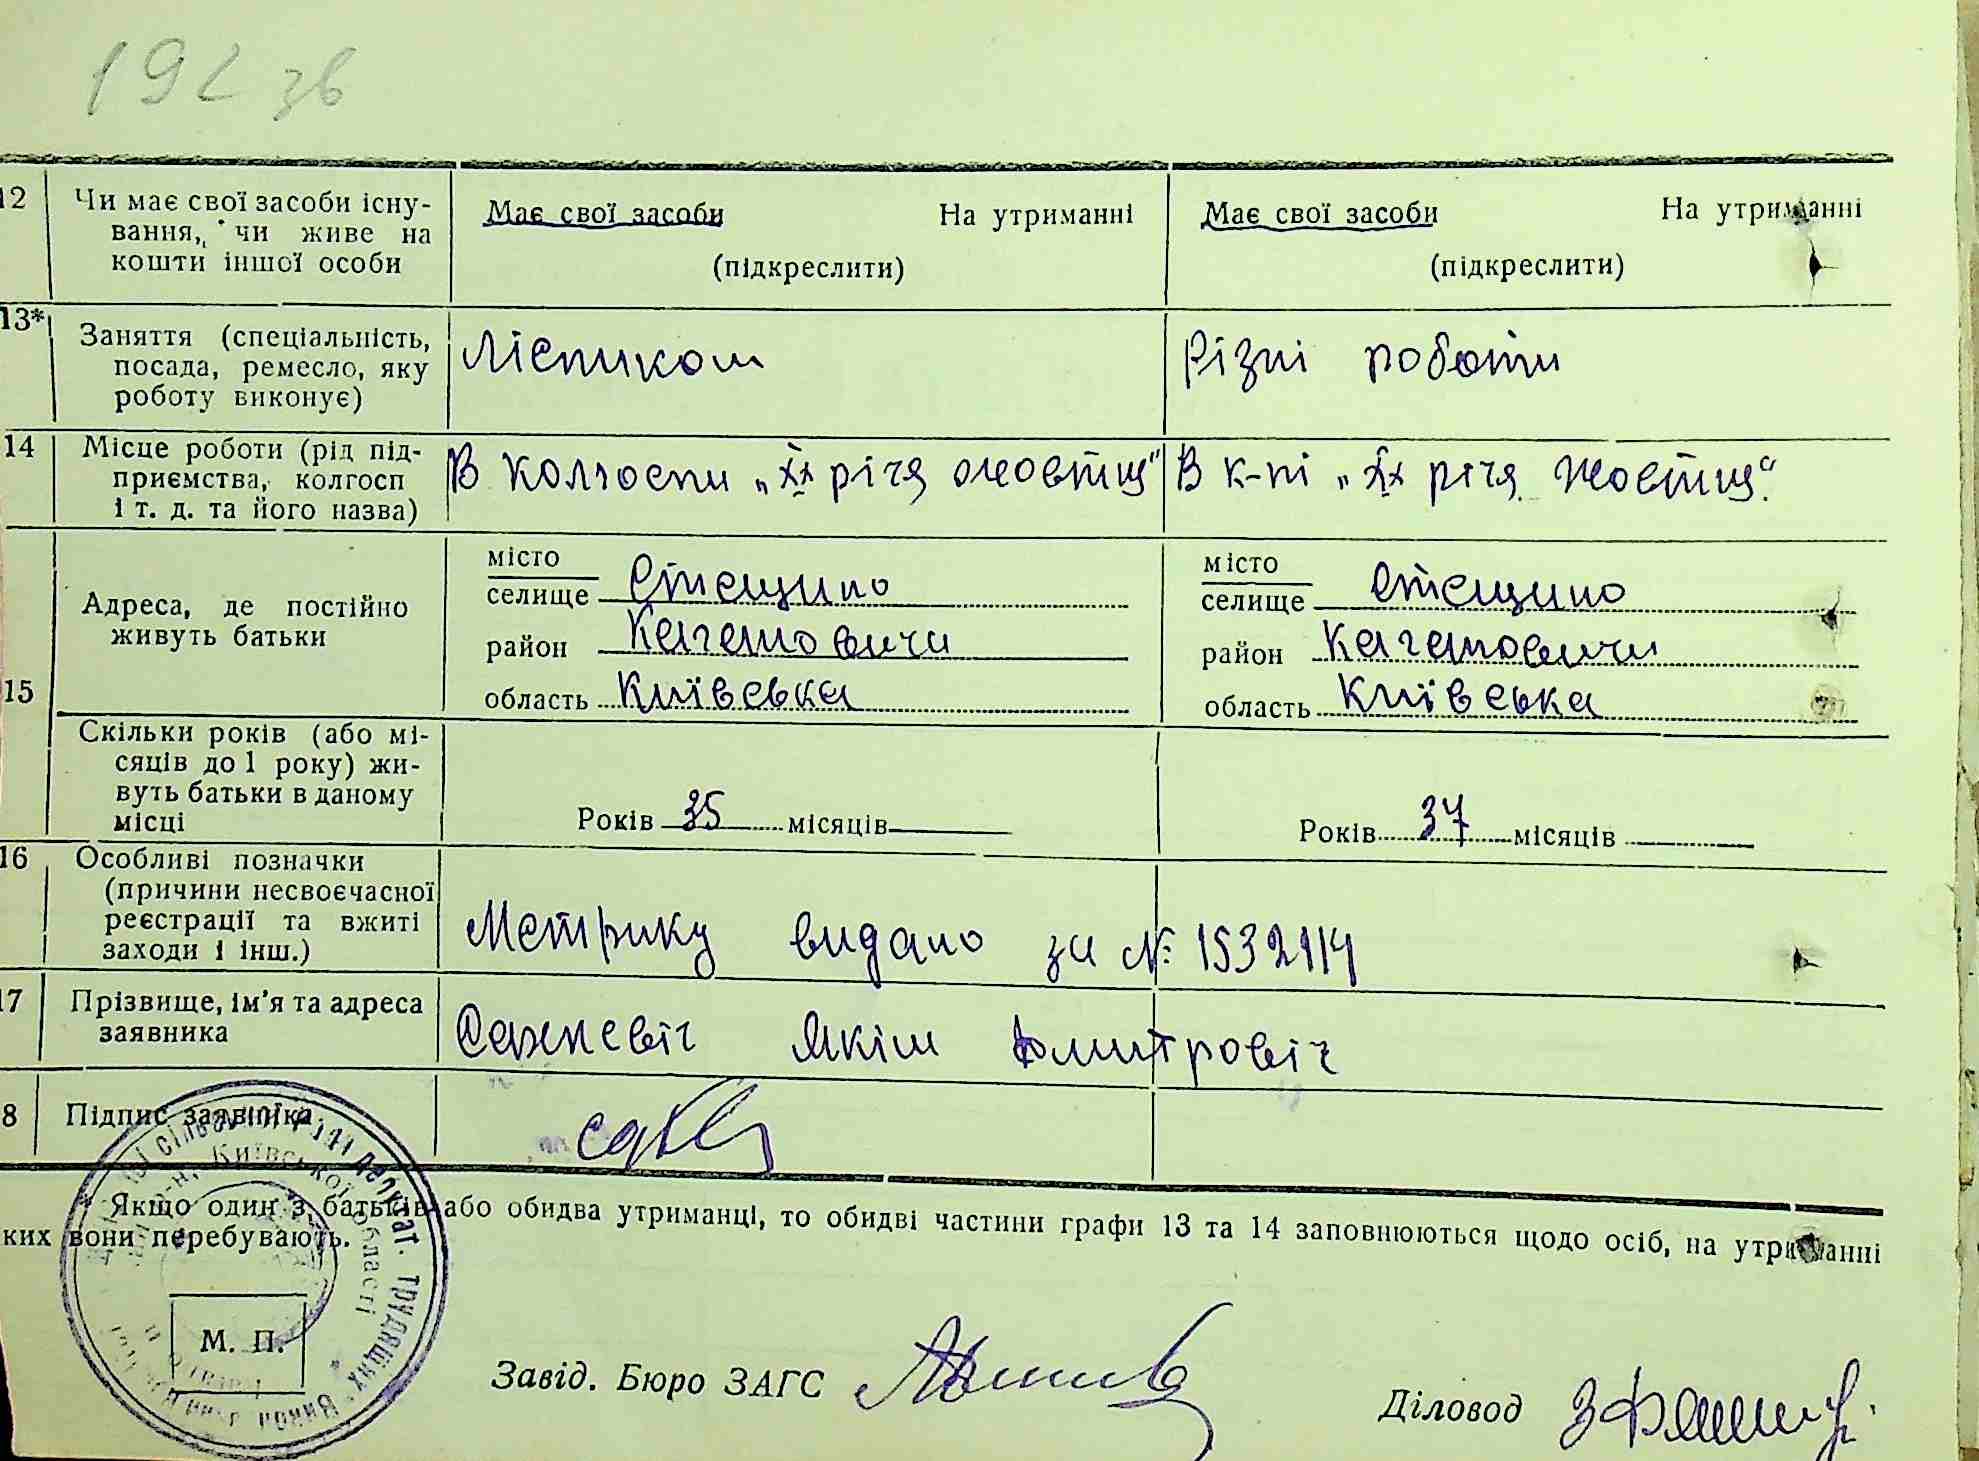 192 зв
12 Чи має свої засоби існу- Має свої засоби На утриманні Має свої засоби На утриманні
вання, чи живе на
кошти іншої особи (підкреслити) (підкреслити)
13* Заняття (спеціальність,
посада, ремесло, яку Різні роботи
роботу виконує)
14 Місце роботи (рід під-
приємства, колгосп В колгоспи „ХХ річя жовтня" В к-пі „ХХ річя жовтня".
і т. д. та його назва)
місто місто
селище Стещино селище Стещино
Адреса, де постійно
живуть батьки район Кагановичи район Кагановичи
15 область Київська область Київська
Скільки років (або мі-
сяців до 1 року) жи-
вуть батьки в даному
місці Років 35 місяців Років 37 місяців
16 Особливі позначки
(причини несвоєчасної
реєстрації та вжиті Метрику видано за №: 1532114
заходи і інш.)
17 Прізвище, ім'я та адреса
заявника Сахневіч Якім Дмитровіч
8 Підпис заявника
* Якщо один з батьків або обидва утриманці, то обидві частини графи 13 та 14 заповнюються щодо осіб, на утриманні
ких вони перебувають.
Київської області
депутат. трудящих
М. П.
Завід. Бюро ЗАГС
Діловод